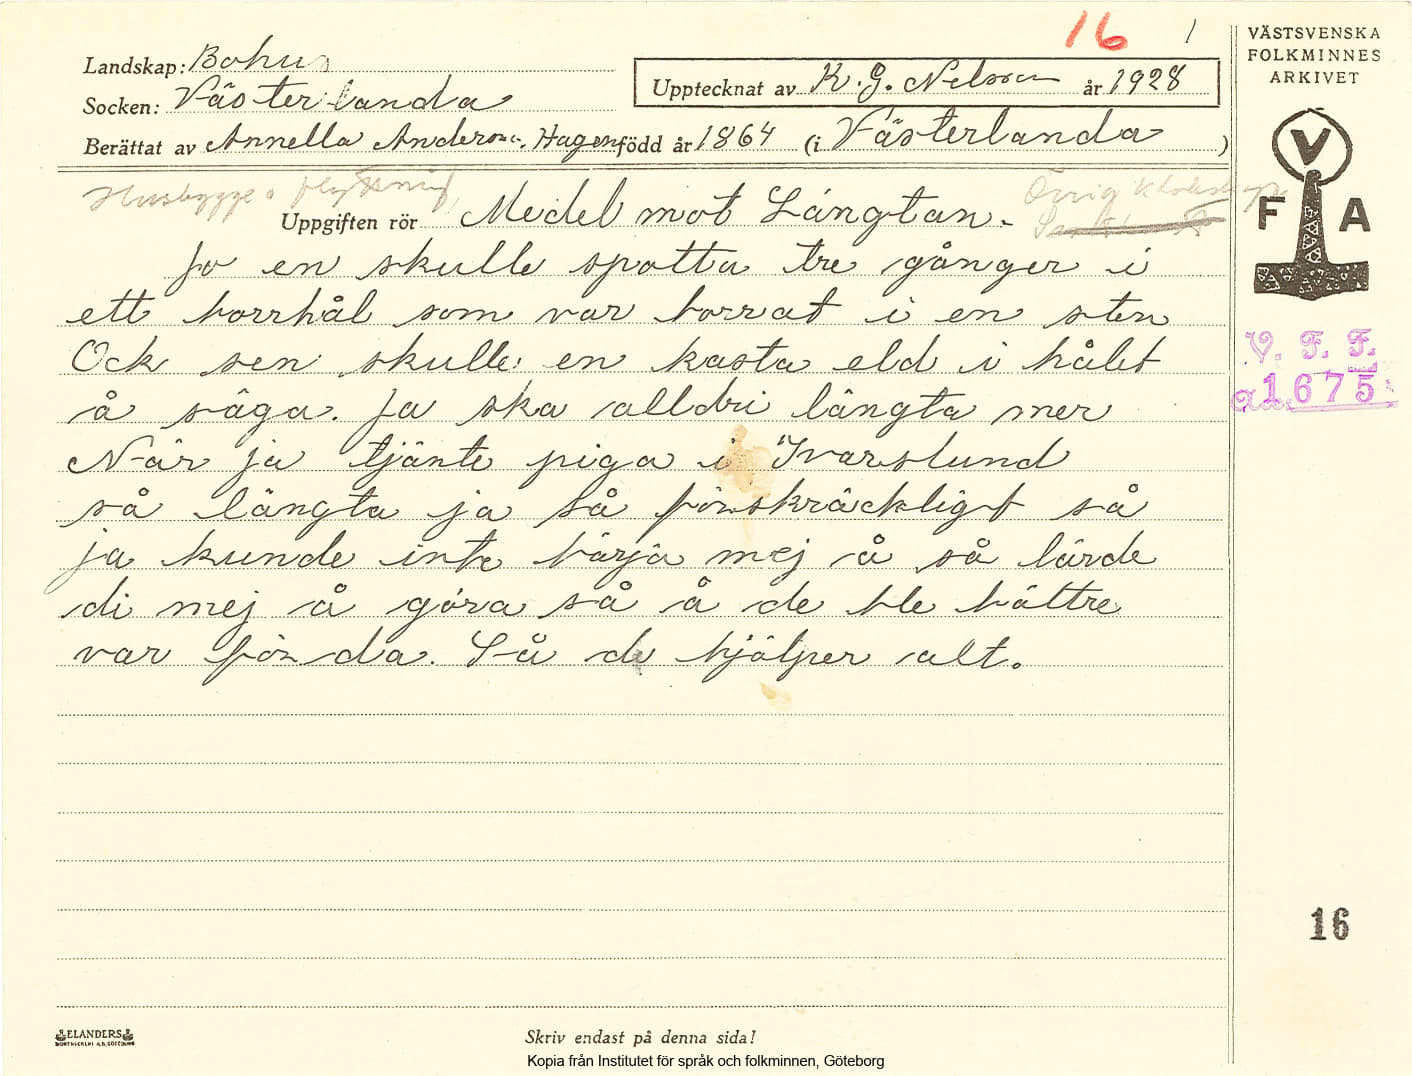 16 1
VÄSTSVENSKA
FOLKMINNES
ARKIVET
Landskap: Bohus
Upptecknat av K. G. Nelson år 1928
Socken: Västerlanda
Berättat av Annella Anderson. Hagen född år 1864 (i Västerlanda )
V
F A
Husbygge o flyttning
Övrig
Uppgiften rör Medel mot Längtan.
Jo en skulle spotta tre gånger i
ett borrhål som var borrat i en sten
Ock sen skulle en kasta eld i hålet
å säga. Ja ska alldri längta mer
När ja tjänte piga i Ivarslund
så längta ja så förskräckligt så
ja kunde inte bärja mej å så lärde
di mej å göra så å de ble bättre
var för da. Så de hjälper alt.
V. F. F.
1675
16
ELANDERS
BOKTRYCKERI A.B. GÖTEBORG
Skriv endast på denna sida!
Kopia från Institutet för språk och folkminnen, Göteborg